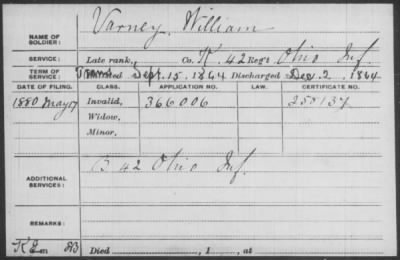 NAME OF SOLDIER: Varney, William
SERVICE: Late rank, Co. K. 42 Reg't Ohio Inf.
TERM OF SERVICE: Sept. 15, 1864 Discharged Dec. 2, 1864
DATE OF FILING. CLASS. APPLICATION NO. LAW. CERTIFICATE NO.
1880 May 17 Invalid, 366006 255137
Widow,
Minor,
ADDITIONAL SERVICES: B 42 Ohio Inf.
REMARKS:
Died , 1 , at